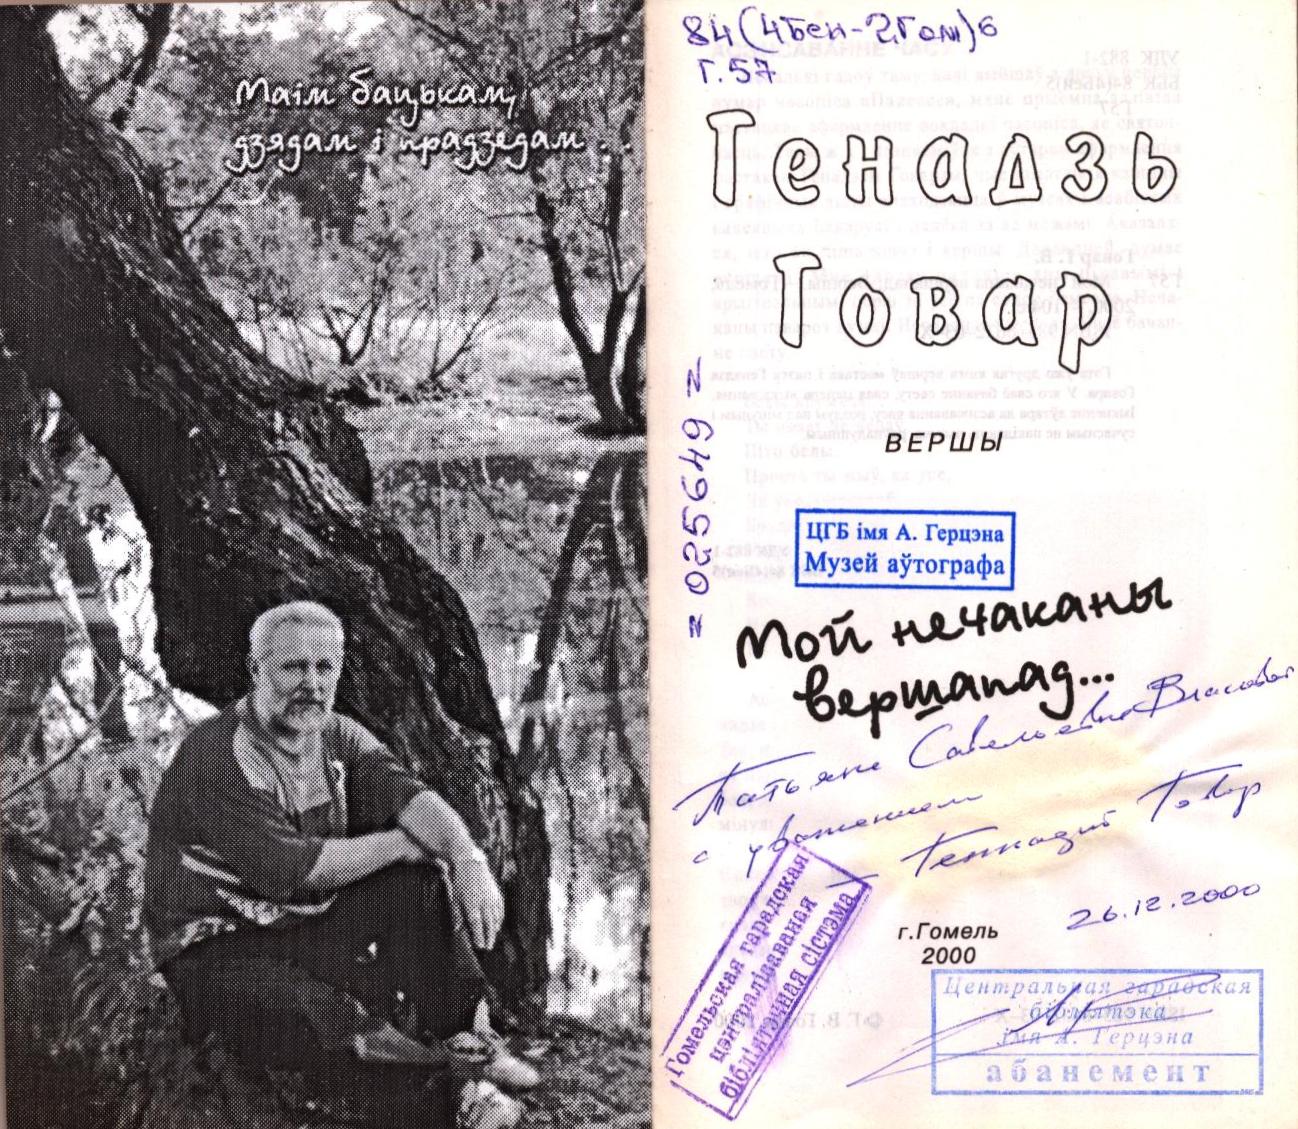 Маім бацькам,
дзядам і прадзедам...
84(4Беи-2Гом)6
Г.57
Генадзь
Говар
ВЕРШЫ
= 025649 =
ЦГБ імя А. Герцэна
Музей аўтографа
Мой нечаканы
вершапад...
Татьяне Савельевне Власовой
с уважением
Геннадий Говар
26.12.2000
г.Гомель
2000
Гомельская гарадская
цэнтралізаваная
бібліятэчная сістэма
Центральная гарадская
бібліятэка
імя А. Герцэна
абанемент